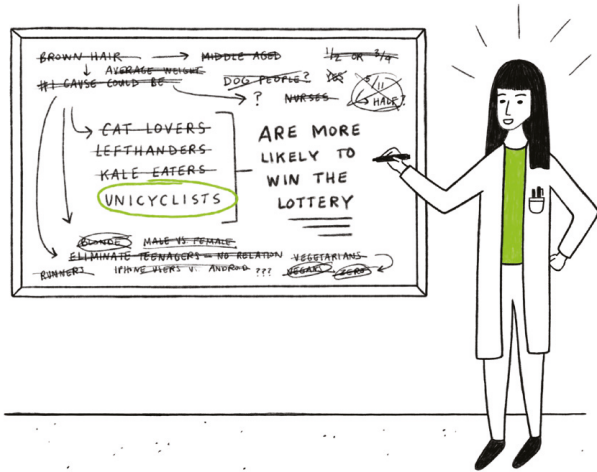 BROWN HAIR → MIDDLE AGED 1/2 OR 3/4
AVERAGE WEIGHT
#1 CAUSE COULD BE
DOG PEOPLE? YES 5/11
? NURSES HALF?
CAT LOVERS
LEFTHANDERS
KALE EATERS
UNICYCLISTS
ARE MORE
LIKELY TO
WIN THE
LOTTERY
BLONDE MALE VS FEMALE
ELIMINATE TEENAGERS – NO RELATION VEGETARIANS
RUNNERS IPHONE USERS V. ANDROID ??? VEGANS ZERO